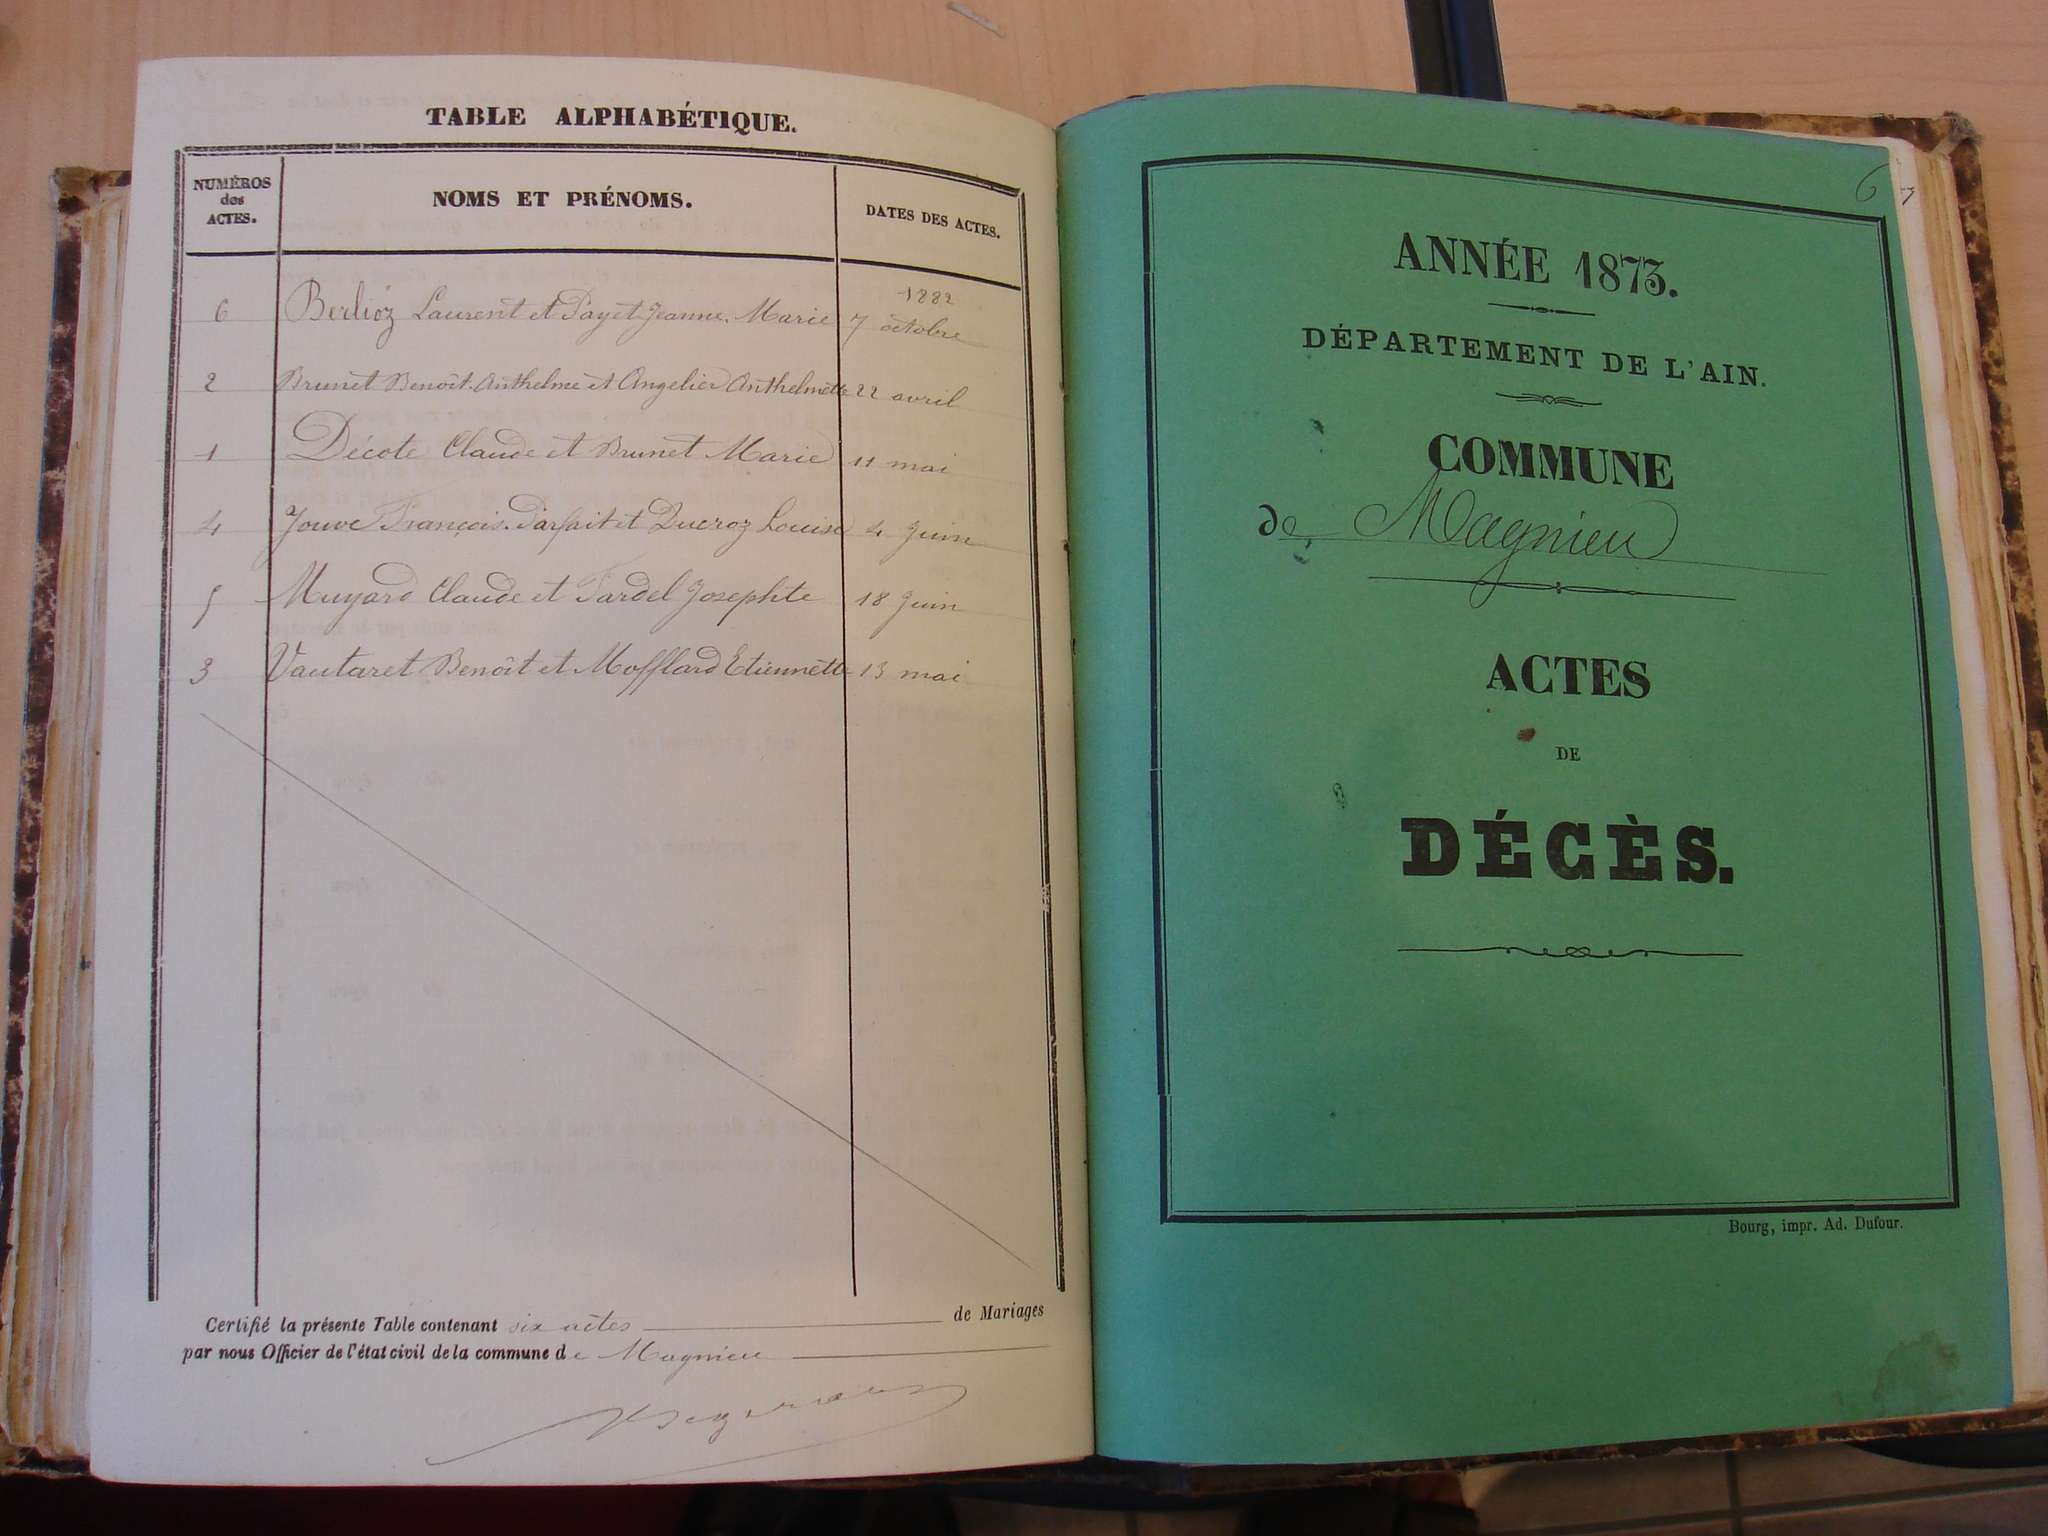 TABLE ALPHABÉTIQUE.
NUMÉROS
des
ACTES.
NOMS ET PRÉNOMS.
DATES DES ACTES.
1882
6 Berlioz Laurent et Payet Jeanne Marie 7 octobre
2 Brunet Benoît Anthelme et Angelier Anthelmette 22 avril
1 Décote Claude et Brunet Marie 11 mai
4 Jouve François Parfait et Ducroz Louise 4 Juin
5 Muyard Claude et Tardel Josephte 18 Juin
3 Vautaret Benoît et Mofflard Etiennette 13 mai
Certifié la présente Table contenant six actes de Mariages
par nous Officier de l'état civil de la commune de Magnieu
6
7
ANNÉE 1873.
DÉPARTEMENT DE L'AIN.
COMMUNE
de Magnieu
ACTES
DE
DÉCÈS.
Bourg, impr. Ad. Dufour.